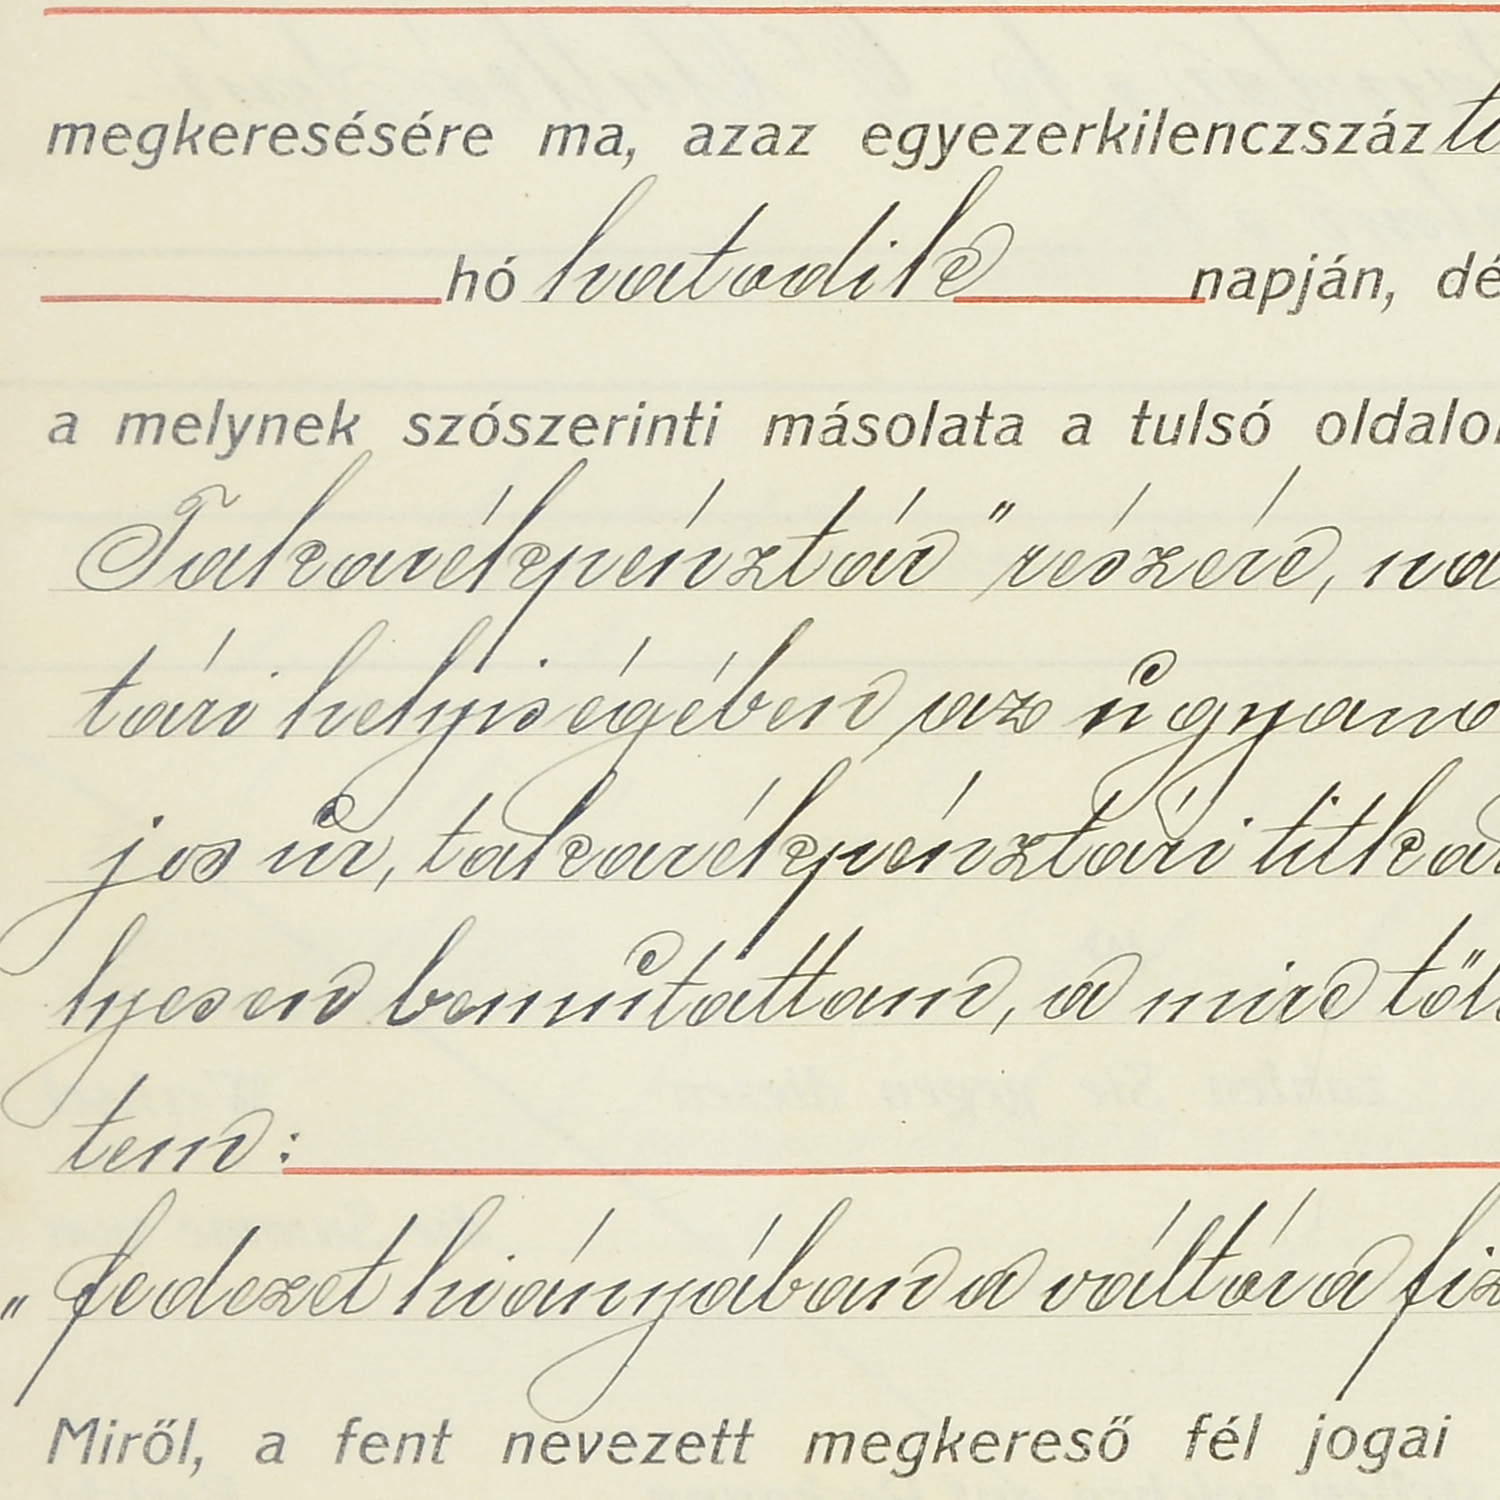 megkeresésére ma, azaz egyezerkilenczszáz ti
hó hatodik napján, dé
a melynek szószerinti másolata a tulsó oldalon
Takarékpénztár" részére, na
tári helyiségében az ugyano
jos úr, takarékpénztári titka
lyesen bemutattam, a mire től
tem:
„fedezet hiányában a váltóra fiz
Miről, a fent nevezett megkereső fél jogai